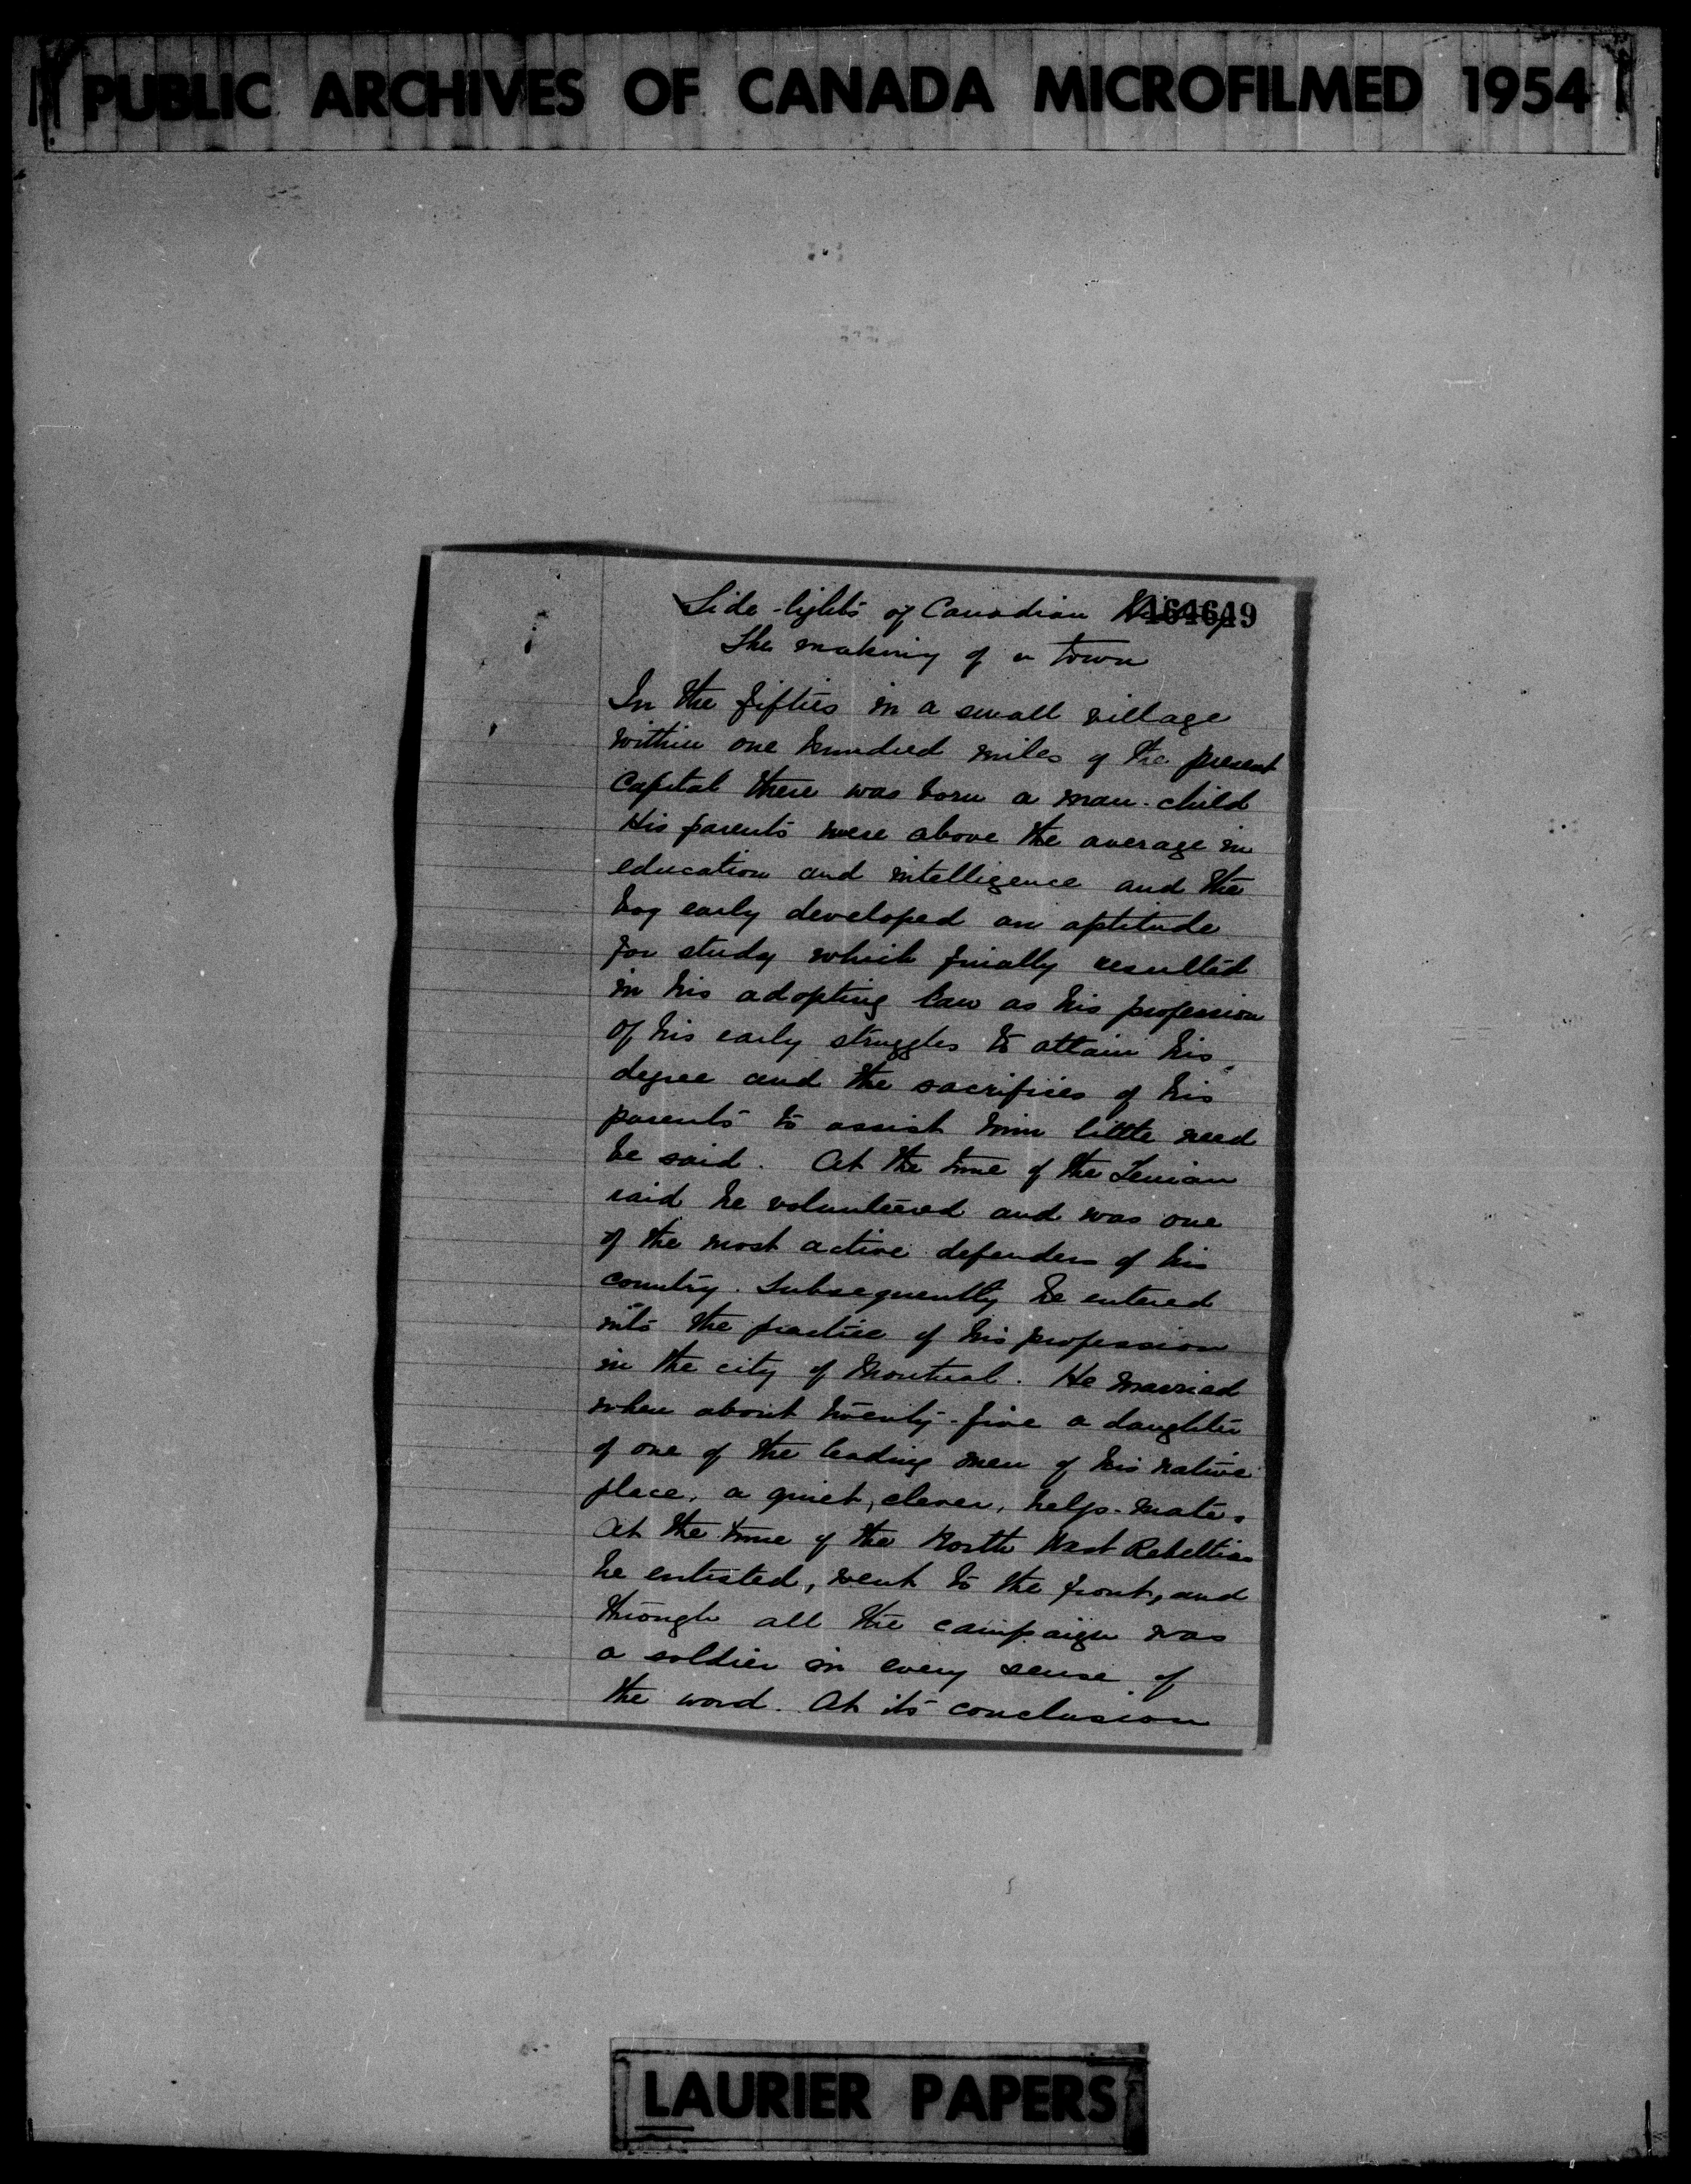 PUBLIC ARCHIVES OF CANADA MICROFILMED 1954
Side-lights of Canadian History
464649
The making of a town
In the fifties in a small village
within one hundred miles of the present
Capital there was born a man-child
His parents were above the average in
education and intelligence and the
boy early developed an aptitude
for study which finally resulted
in his adopting law as his profession
Of his early struggles to attain his
degree and the sacrifices of his
parents to assist him little need
be said. At the time of the Fenian
raid he volunteered and was one
of the most active defenders of his
country. Subsequently he entered
into the practice of his profession
in the city of Montreal. He married
when about twenty-five a daughter
of one of the leading men of his native
place, a quiet, clever, help-mate.
At the time of the North West Rebellion
he enlisted, went to the front, and
through all the campaign was
a soldier in every sense of
the word. At its conclusion
LAURIER PAPERS